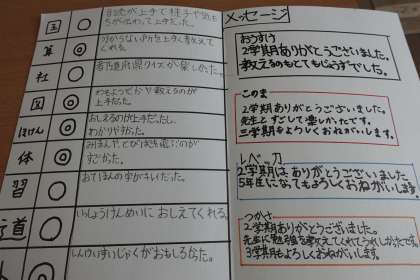 国 ○ 音読が上手で様子や気もちが伝わって上手だった。
算 ◎ 分からない所を上手く教えてくれる。
社 ○ 都道府県クイズが楽しかった。
図 ◎ 教えるのが上手だった。
ほけん ◎ おしえるのが上手だったし、
わかりやすかった。
体 ◎ すごかった。
習 ○ おてほんの字がキレイだった。
道 ○ いっしょうけんめいに おしえてくれる。
○ しんけいすいじゃくがおもしろかった。
メッセージ
おうすけ
2学期ありがとうございました。
教えるのもとてもじょうずでした。
このま
2学期ありがとうございました。
先生とすごして楽しかったです。
三学期もよろしくおねがいします。
2学期はありがとうございました。
5年生になってもよろしくおねがいします。
つかさ
2学期ありがとうございました。
先生に勉強を教えてくれてうれしかたです。
3学期もよろしくおねがいします。